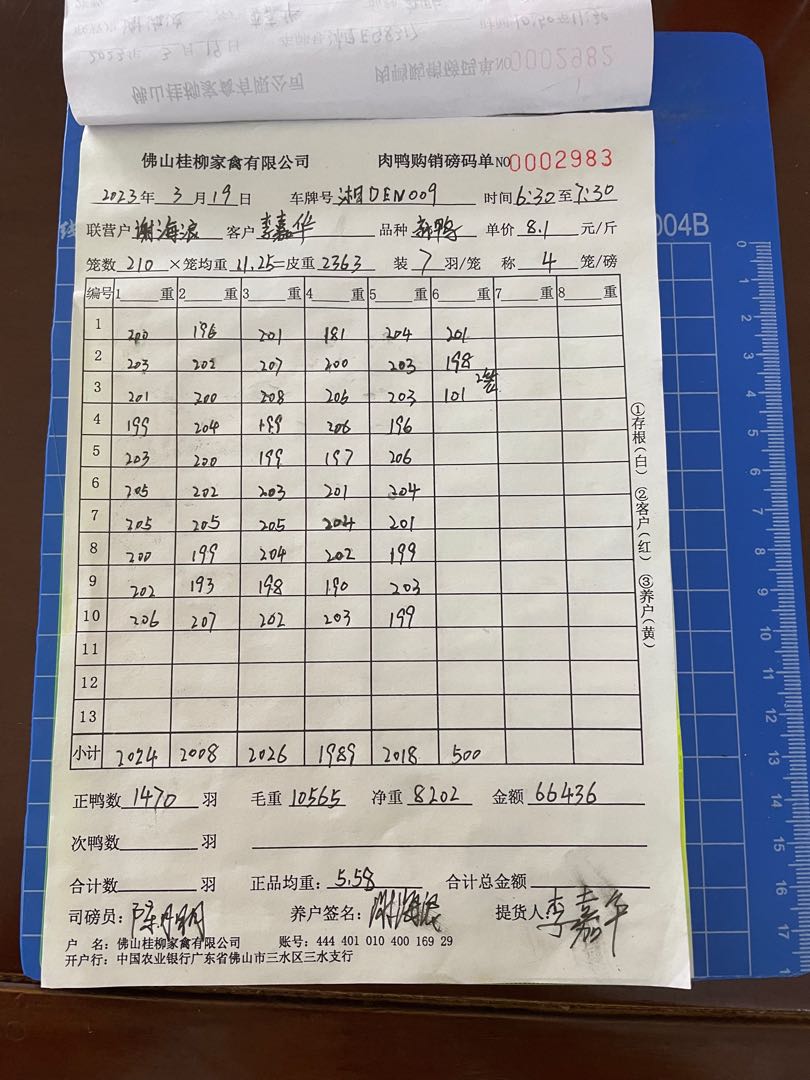 佛山桂柳家禽有限公司 肉鸭购销磅码单 NO 0002982
佛山桂柳家禽有限公司 肉鸭购销磅码单 NO 0002983
2023年 3月19日 车牌号 湘DEN009 时间 6:30至7:30
联营户 谢海浪 客户 李嘉华 品种 鸭 单价 8.1 元/斤
笼数 210 ×笼均重 11.25=皮重 2363 装 7 羽/笼 称 4 笼/磅
编号 1 重 2 重 3 重 4 重 5 重 6 重 7 重 8 重
1 200 196 201 181 204 201
2 203 202 207 200 203 198
3 201 200 208 206 203 101 2笼
4 199 204 199 206 196
5 203 200 199 197 206
6 205 202 203 201 204
7 205 205 205 204 201
8 200 199 204 202 199
9 202 193 198 190 203
10 206 207 202 203 199
11
12
13
小计 2024 2008 2026 1989 2018 500
①存根(白) ②客户(红) ③养户(黄)
正鸭数 1470 羽 毛重 10565 净重 8202 金额 66436
次鸭数 羽
合计数 羽 正品均重: 5.58 合计总金额
司磅员: 养户签名: 谢海浪 提货人 李嘉华
户 名: 佛山桂柳家禽有限公司 账号: 444 401 010 400 169 29
开户行: 中国农业银行广东省佛山市三水区三水支行
004B
0 1 2 3 4 5 6 7 8 9 10 11 12 13 14 15 16 17